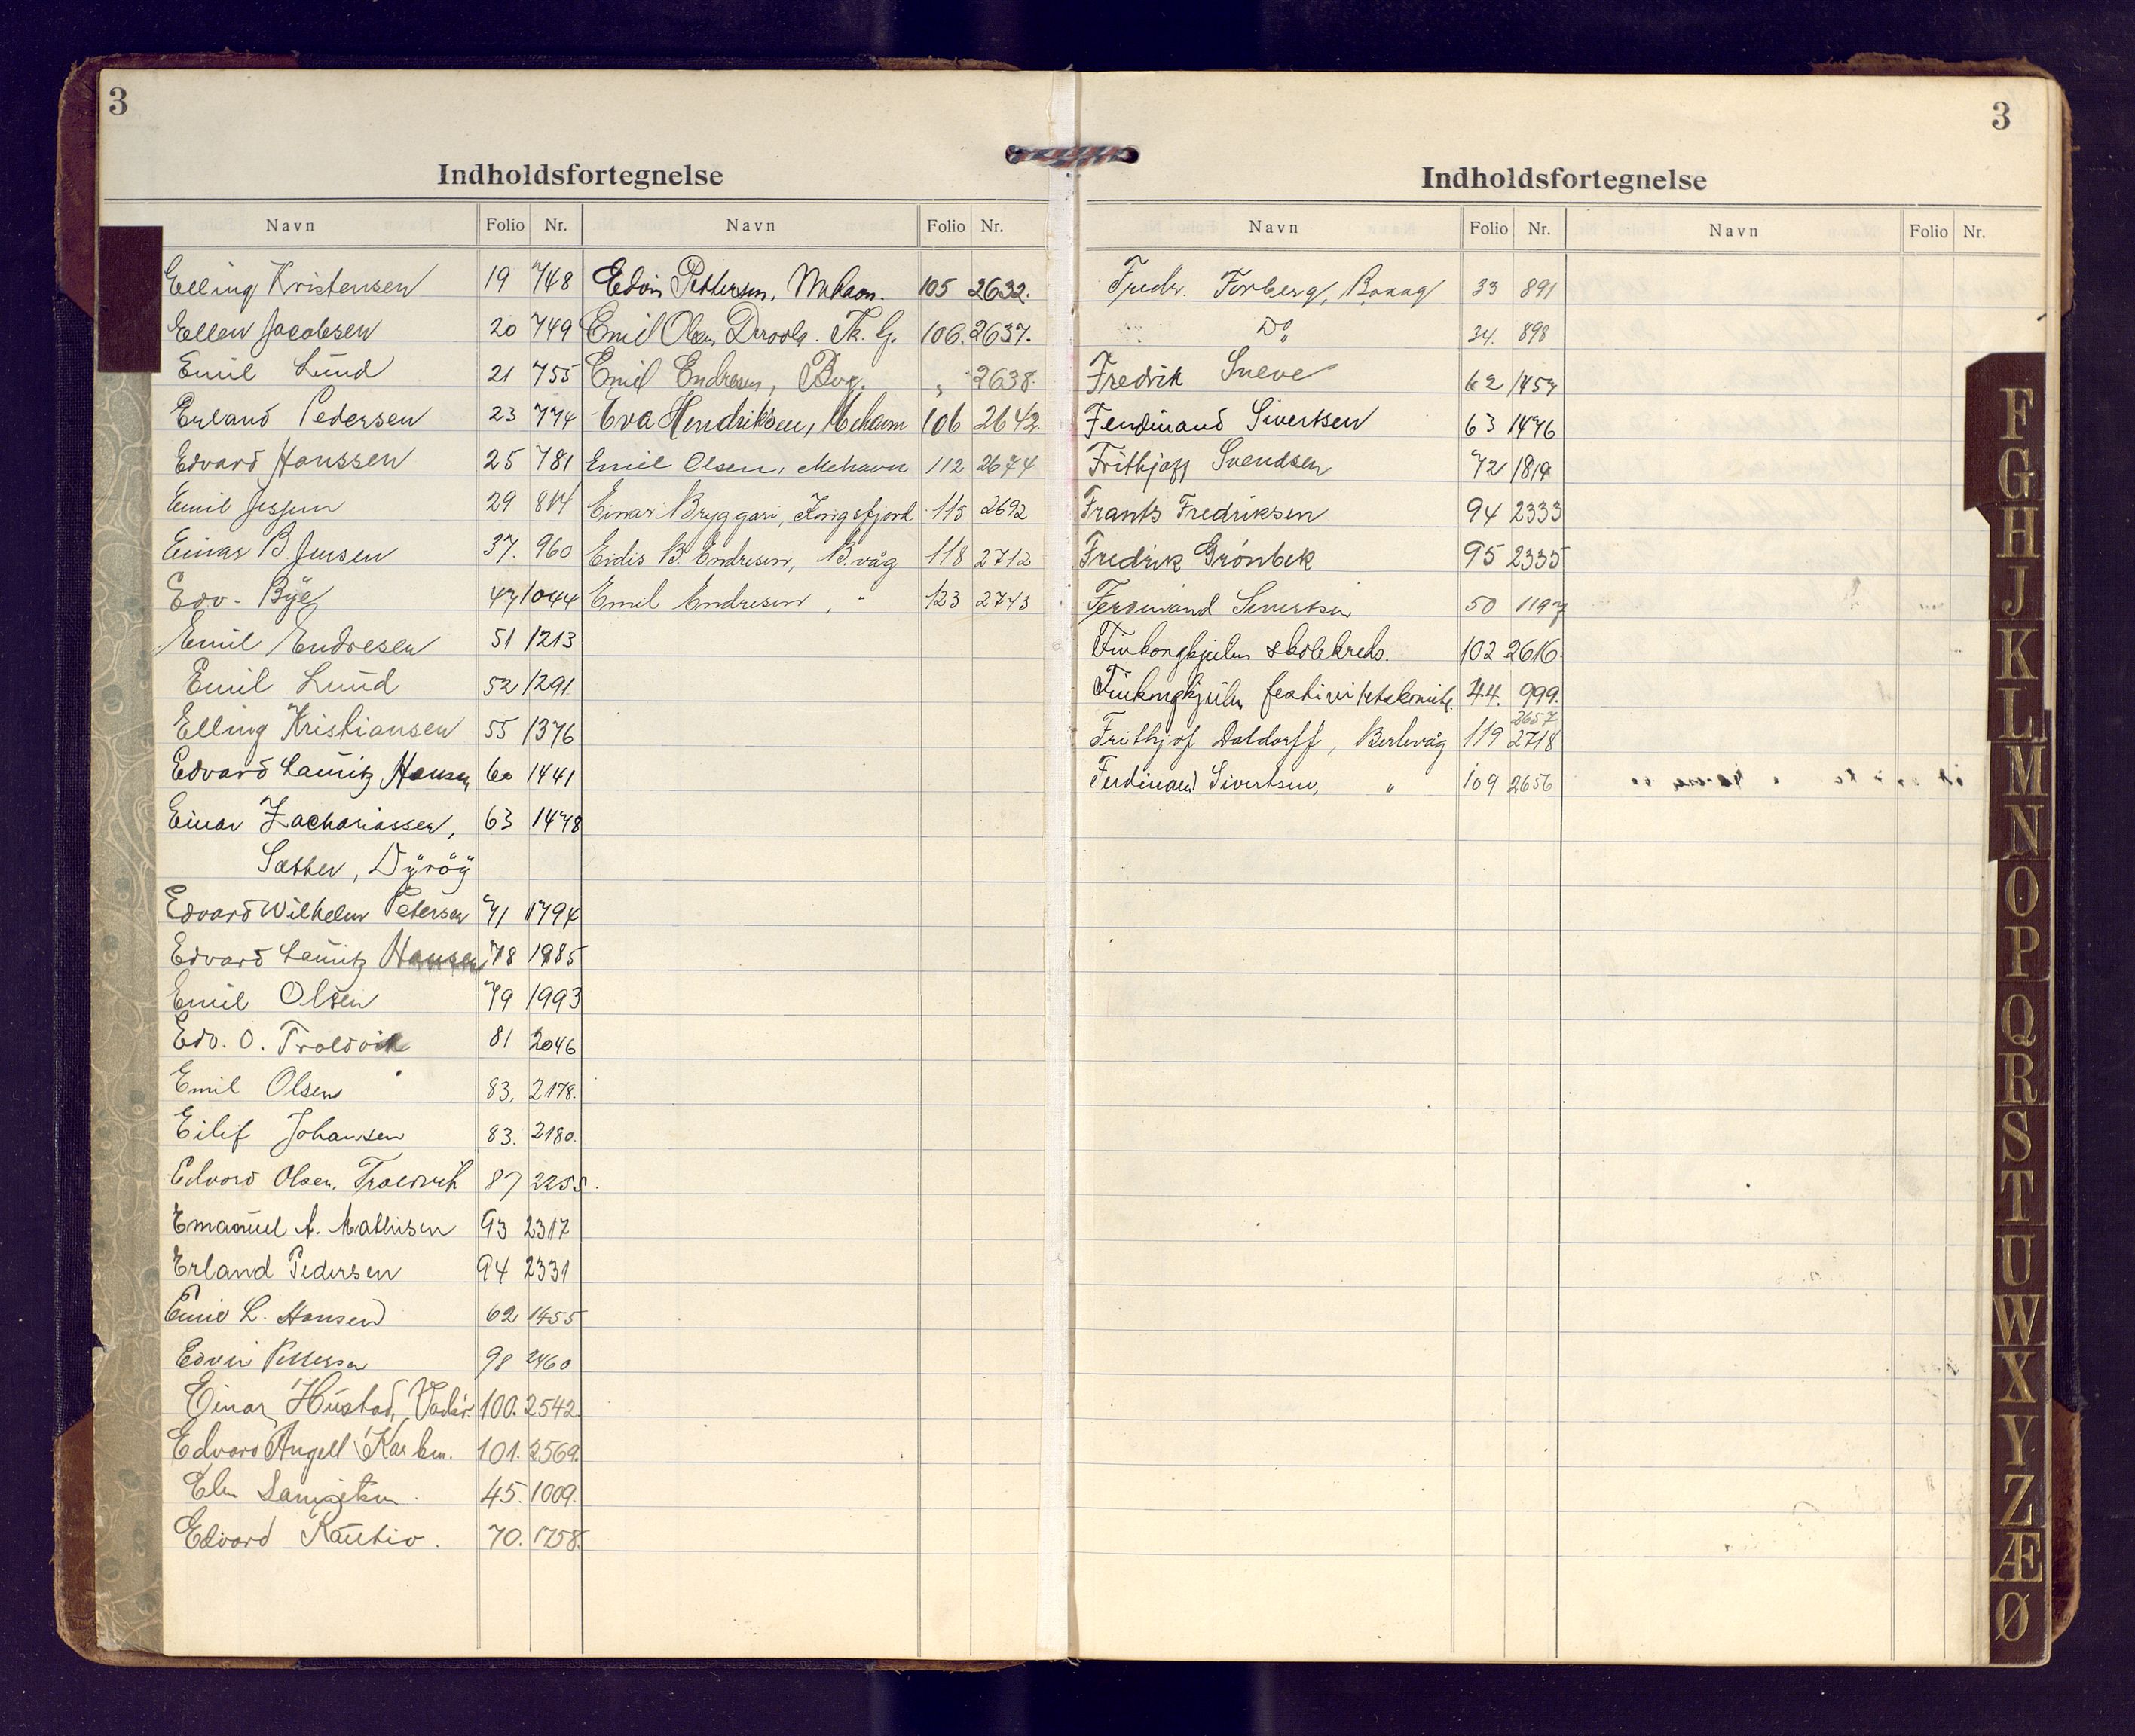 3
Indholdsfortegnelse
Navn Folio Nr. Navn Folio Nr.
Elling Kristensen 19 748
Ellen Jacobsen 20 749
Emil Lund 21 755
Erland Pedersen 23 774
Edvard Hanssen 25 781
Emil Jessen 29 814
Einar B. Jensen 37. 960
Edv. Bÿe 47 1044
Emil Endresen 51 1213
Emil Lund 52 1291
Elling Kristiansen 55 1376
Edvard Lauritz Hansen 60 1441
Einar Zachariassen, 63 1478
Sætter, Dÿröÿ
Edvard Wilhelm Petersen 71 1794
Edvard Lauritz Hansen 78 1985
Emil Olsen 79 1993
Edv. O. Troldvik 81 2046
Emil Olsen 83. 2178.
Eilif Johansen 83. 2180.
Edvard Olsen, Troldvik 87 2255.
Emanuel A. Mathisen 93 2317
Erland Pedersen 94 2331
Emil L. Hansen 62 1455
Edvin Pettersen 98 2460
Einar Hustad, Vadsö. 100. 2542.
Edvard Angell 101. 2569.
45. 1009.
Edvard Kautio. 70. 1758.
Edvin Pettersen, Mehavn. 105 2632.
Emil Olsen 106. 2637.
Emil Endresen, Bvg. " 2638.
Eva Hendriksen, Mehavn 106 2642
Emil Olsen, Mehavn 112 2674
Einar Bryggari, Kongsfjord 115 2692
Eidis B. Endresen, B.våg 118 2712
Emil Endresen, " 123 2743
3
Indholdsfortegnelse
Navn Folio Nr. Navn Folio Nr.
Fredr. Forberg, Bvaag 33 891
Do 34. 898
Fredrik Sneve 62 1457
Ferdinand Sivertsen 63 1476
Frithjoff Svendsen 72 1819
Frants Fredriksen 94 2333
Fredrik Grönbek 95 2335
Ferdinand Sivertsen 50 1197
Finkongkjeilen skolekreds. 102 2616.
Finkongkjeilen festivitetskomite. 44. 999.
2657
Frithjof Daldorff, Berlevåg 119 2718
Ferdinand Sivertsen, " 109 2656
F
G
H
J
K
L
M
N
O
P
Q
R
S
T
U
W
X
Y
Z
Æ
Ø